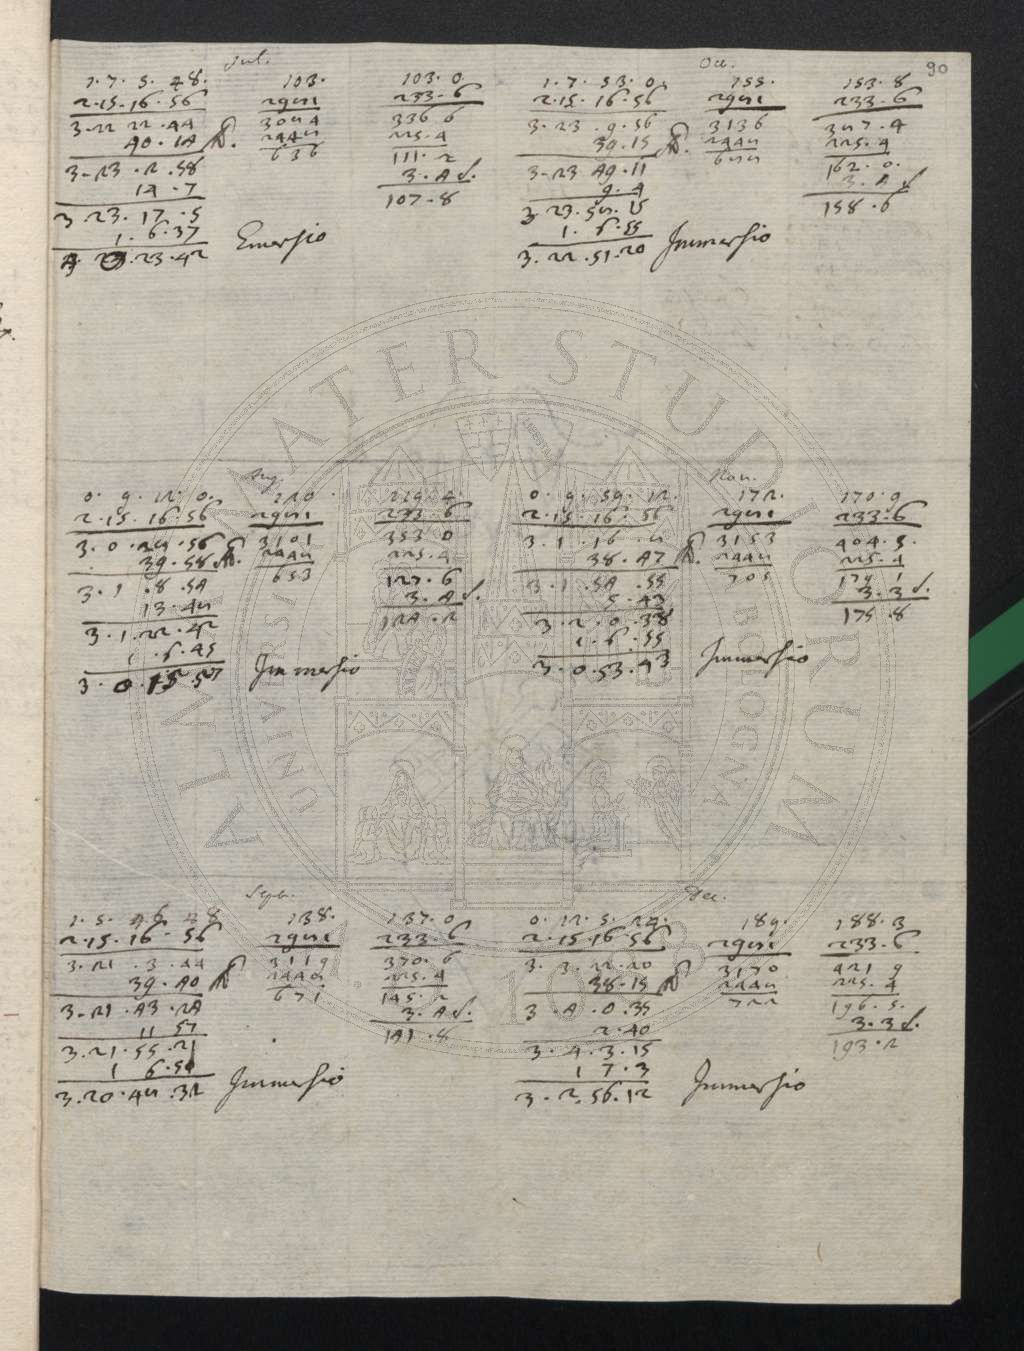 90
Jul.
1.7.5.48.
2.15.16.56
3.22.22.44
40.14
3.23.2.58
14.7
3.23.17.5
1.6.37
23.23.42
Emersio
103.
2981
3084
2448
636
103.0
233.6
336.6
225.4
111.2
3.4 s.
107.8
Oct.
1.7.53.0.
2.15.16.56
3.23.9.56
39.15
3.23.49.11
9.4
3.23.58.15
1.6.55
3.22.51.20
Immersio
155.
2981
3136
2448
688
153.8
233.6
387.4
225.4
162.0.
3.4 s
158.6
Aug.
0.9.12.0.
2.15.16.56
3.0.28.56
39.58
3.1.8.54
13.48
3.1.22.42
1.6.45
3.0.15.57
Immersio
120
2981
3101
2448
653
119.4.
233.6
353.0
225.4
127.6
3.4 s.
124.2
Nou.
0.9.59.12.
2.15.16.56
3.1.16.8
38.47
3.1.54.55
5.43
3.2.0.38
1.6.55
3.0.53.43
Immersio
172.
2981
3153
2448
705
170.9
233.6
404.5.
225.4
179.1
3.3 s.
175.8
Sept.
1.5.46.48
2.15.16.56
3.21.3.44
39.40
3.21.43.24
11 57
3.21.55.21
1 6.
3.20.48.32
Immersio
138.
2981
3119
2448
671
137.0
233.6
370.6
225.4
145.2
3.4 s.
141.8
Dec.
0.12.5.24.
2.15.16.56
3.3.22.20
38.15
3.4.0.35
2.40
3.4.3.15
1 7.3
3.2.56.12
Immersio
189.
2981
3170
2448
722
188.3
233.6
421.9
225.4
196.5.
3.3 s.
193.2
ALMA MATER STUDIORUM
UNIVERSITÀ DI BOLOGNA
1088